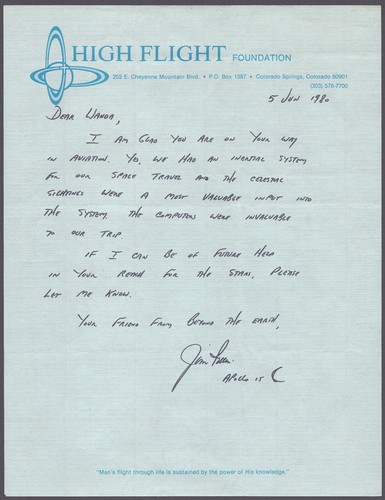 HIGH FLIGHT FOUNDATION
202 E. Cheyenne Mountain Blvd. • P.O. Box 1387 • Colorado Springs, Colorado 80901
(303) 576-7700
5 JUN 1980
DEAR WANDA,
I AM GLAD YOU ARE ON YOUR WAY
IN AVIATION. YES, WE HAD AN INERTIAL SYSTEM
FOR OUR SPACE TRAVEL AND THE CELESTIAL
SIGHTINGS WERE A MOST VALUABLE INPUT INTO
THE SYSTEM. THE COMPUTERS WERE INVALUABLE
TO OUR TRIP.
IF I CAN BE OF FUTURE HELP
IN YOUR REACH FOR THE STARS, PLEASE
LET ME KNOW.
YOUR FRIEND FROM BEYOND THE EARTH,
Jim
APOLLO 15
"Man's flight through life is sustained by the power of His knowledge."